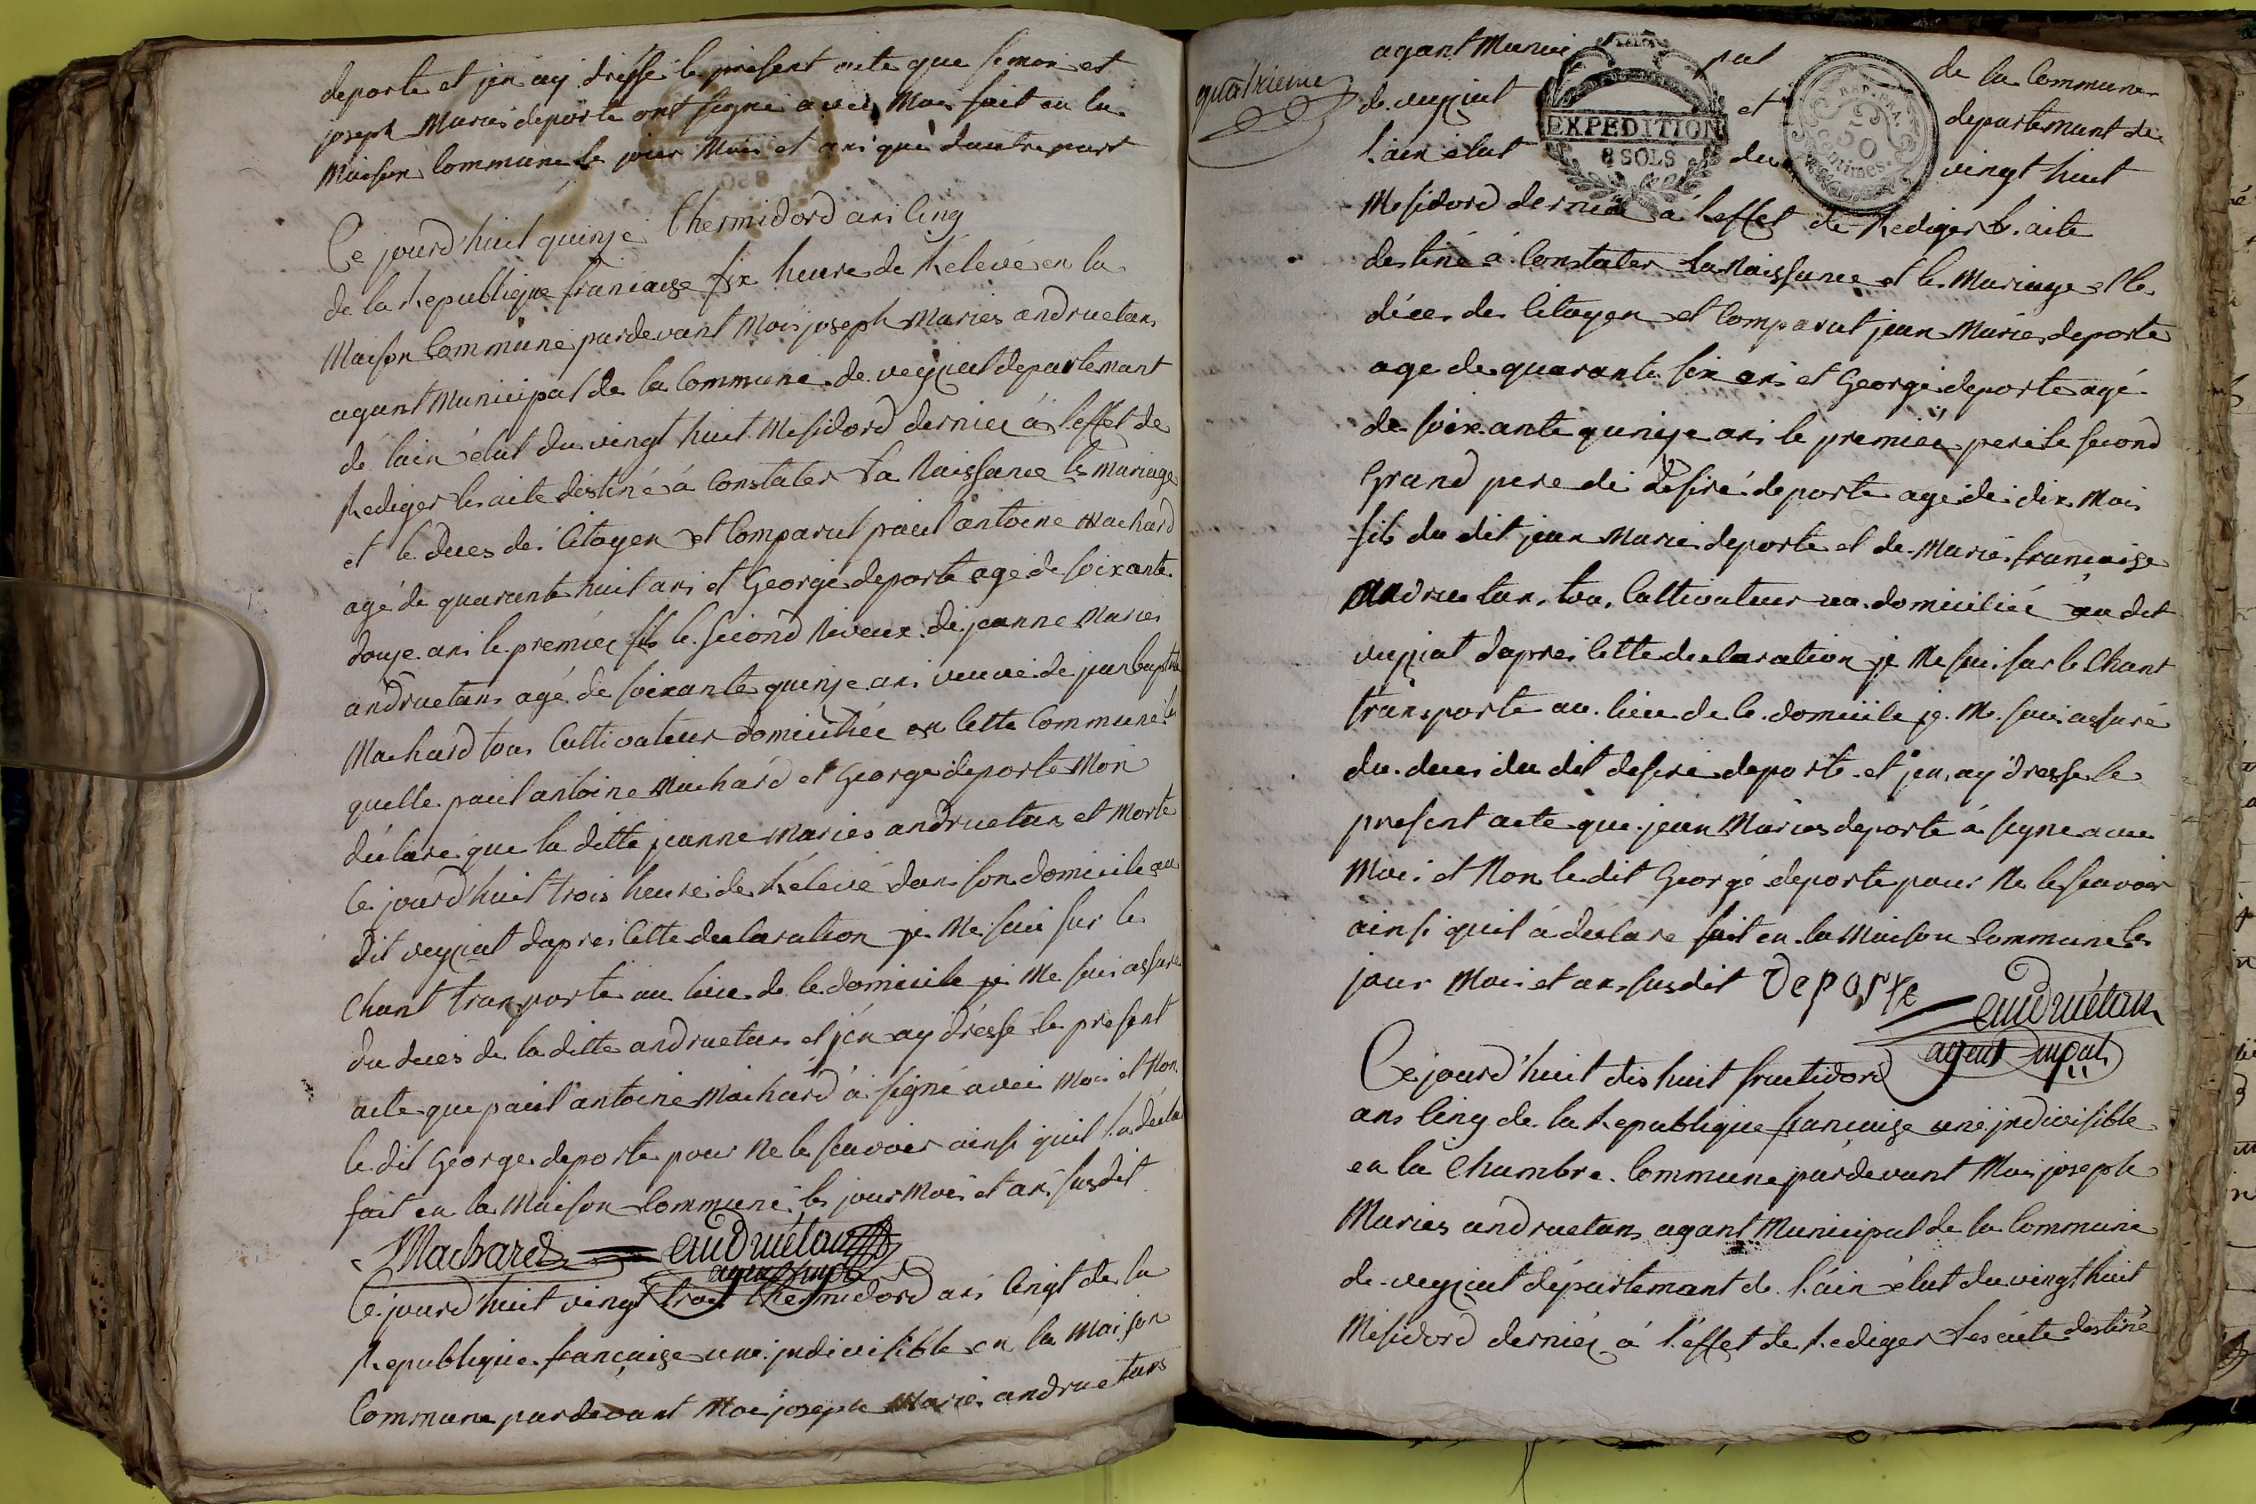 deporte et jen ay dressé le present acte que simon et
joseph Maries deporte ont signé avec Moi fait en la
Maison Commune le jour Mois et ans que d'autre part
Ce jourd'huit quinze thermidord ans cinq
de la Republique francaise six heure de Relevé en la
Maison Commune pardevant Moi joseph Maries andruetans
agant Municipal de la Commune de veyziat departemant
de lain élut du vingt huit Mesidord dernier à l'effet de
Rediger les aite destiné à Constater La Naissance le Mariage
et le dues des Citoyen et Comparut paul antoine Machard
agé de quarante huit ans et George deporte age de soixante
douze ans le premier fils le second Neveux de jeanne Maries
andruetans agé de soixante quinze ans veuve de jean baptiste
Machard tous Cultivateur domicilieé en Cette Commune les
quelle paul antoine Machard et George deporte Mon
déclaré que la ditte jeanne Maries andruetans et Morte
Ce jourd'huit trois heure de Relevé dans son domicile au
dit veyziat dapres Cette declaration je Me suis sur le
Chant transporté au lieu de le domicile je Me suis assuré
du duces de la ditte andruetans et j'en ay dressé le present
acte que paul antoine Machard à signé avec Moi et Non
le dit George deporte pour Ne le scavoir ainsi quil la decla
fait en la Maison Commune les jour Mois et ans susdit
Machard andruétan
agent mpal
Ce jourd'huit vingt trois thermidord ans Cingt de la
Republique francaise une jndivisible en la Maison
Commune pardevant Moi joseph Maries andruetans
quatrieme
agant Munici pal de la Commune
de veyziat et departemant de
l'ain élut du vingt huit
EXPEDITION
8 SOLS
REP. FRA.
50
centimes
Mesidord dernier à l'effet de Rediger les aite
destiné à Constater La Naissance et le Mariage et le
déces des Citoyen et Comparut jean Maries deporte
age de quarante six ans et George deporte agé
de soixante quinze ans le premier pere le second
Grand pere de desiré deporte agé de dix Mois
fils du dit jean Marie deporte et de Marie francoise
andruetans tous Cultivateur domiciliée au dit
veyziat dapres Cette declaration je Me suis sur le Chant
transporte au lieu de le domicile je Me suis assuré
du dues du dit desiré deporte et j'en ay dressé le
present acte que jean Maries deporte à signe avec
Moi et Non le dit George deporte pour Ne le scavoir
ainsi quil a declare fait en la Maison Commune les
jour Mois et ans susdit Deporte
andruétan
agent mpal
Ce jourd'huit dix huit fructidord
ans Cinq de la Republique francaise une jndivisible
en la Chambre Commune pardevant Moi joseph
Maries andruetans agant Municipal de la Commune
de veyziat départemant de l'ain élut du vingt huit
Mesidord dernier à l'effet de Rediger Les aite destiné